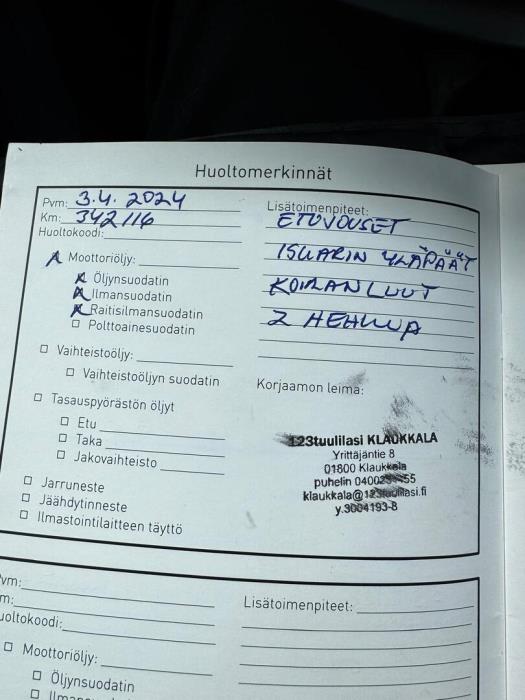 Huoltomerkinnät
Pvm: 3.4. 2024
Km: 342116
Huoltokoodi:
Moottoriöljy:
Öljynsuodatin
Ilmansuodatin
Raitisilmansuodatin
Polttoainesuodatin
Vaihteistoöljy:
Vaihteistoöljyn suodatin
Tasauspyörästön öljyt
Etu
Taka
Jakovaihteisto
Jarruneste
Jäähdytinneste
Ilmastointilaitteen täyttö
Lisätoimenpiteet:
ETUVOUSET
ISKARIN YLÄPÄÄT
KOIRANLUUT
2 HEHKUA
Korjaamon leima:
123tuulilasi KLAUKKALA
Yrittäjäntie 8
01800 Klaukkala
puhelin
klaukkala@123tuulilasi.fi
y.3004193-8
vm:
m:
uoltokoodi:
Moottoriöljy:
Öljynsuodatin
Lisätoimenpiteet: